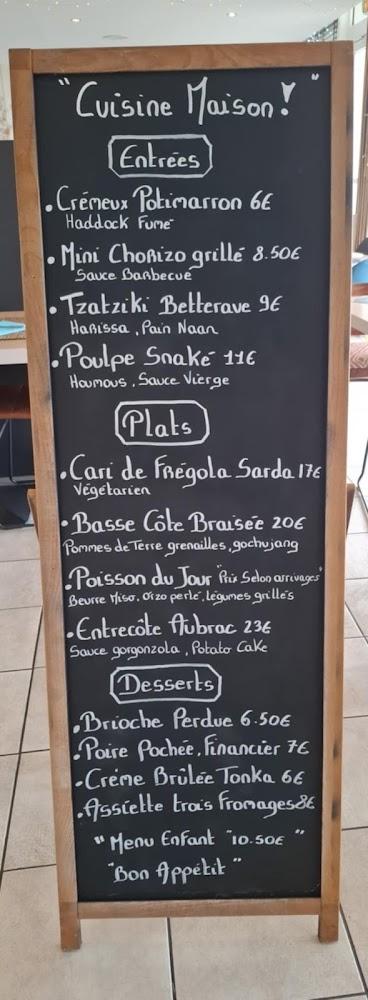 "Cuisine Maison!"
Entrées
• Crémeux Potimarron 6€
Haddock Fumé
• Mini Chorizo grillé 8.50€
Sauce Barbecue
• Tzatziki Betterave 9€
Harissa, Pain Naan
• Poulpe Snaké 11€
Houmous, Sauce Vierge
Plats
• Cari de Frégola Sarda 17€
Végétarien
• Basse Côte Braisée 20€
Pommes de Terre grenailles, gochujang
• Poisson du Jour "Prix Selon arrivages"
Beurre Miso, Orzo perlé, légumes grillés
• Entrecôte Aubrac 23€
Sauce gorgonzola, Potato Cake
Desserts
• Brioche Perdue 6.50€
• Poire Pochée, Financier 7€
• Crème Brûlée Tonka 6€
• Assiette trois Fromages 8€
"Menu Enfant "10.50€"
"Bon Appétit"